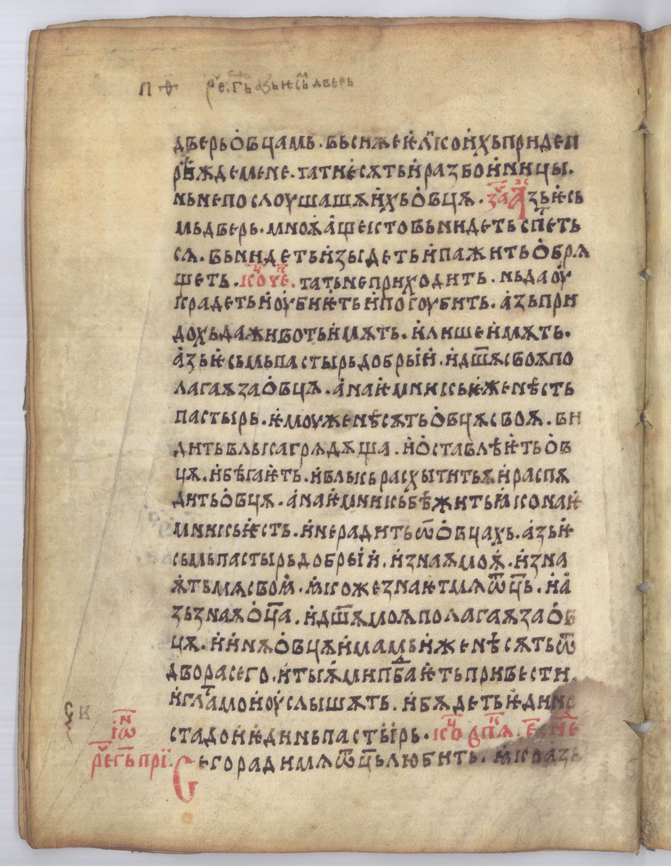 п ѳ҃ ре҃ г҃ь азъ ѥсмь дверь
дверь ѻ҆вцамь · вьси ѥ҆ли́ко и҆хь приде п
рѣжде мене · татиѥ сѫть и҆ разбоиници ·
нь не послоушашѧ и҆хь ѻ҆вцѧ · за҃ч А҆зь ѥ҆сь
мь дверь · мноѫ а҆ще кто вьнидеть сп҃еть
сѧ · вьнидеть и҆ зыдеть и҆ пажить ѻ҆брѧ
щеть · ко҃ц ᲂу҆е҃ · тать не приходить · нь да ᲂу҆
крадеть и҆ ᲂу҆биѥть и҆ погоубить · а҆зь при
дохь да животь и҆мѫть · и҆ лише и҆мѫть ·
а҆зь ѥ҆смь пастырь добрыи҆ · и҆ дш҃ѫ своѫ по
лагаѫ за ѻ҆вцѧ · а҆ наи҆мникь и҆же нѣсть
пастырь · ѥ҆моуже не сѫть ѻ҆вцѧ своѧ · ви
дить влька грѧдѫща · и҆ ѻ҆ставлѣѥть ѻ҆в
цѧ · и҆ бѣгаѥ҆ть · и҆ влькь расхытить ѧ҆ и҆ распѫ
дить ѻ҆вцѧ · а҆ наи҆мникь бѣжить ꙗ҆ко наи҆
мникь ѥ҆сть · и҆ не радить ѿ ѻ҆вцахь · а҆зь ѥ҆
сьмь пастырь добрыи҆ · и҆ знаѫ моѧ҆ · и҆ зна
ѫ҆ть мѧ своѧ҆ · ꙗ҆коже знаѥть мѧ ѿц҃ь · и҆ а҆
зь знаѫ ѻ҆ц҃а · и҆ дш҃ѫ моѫ полагаѫ за ѻ҆в
цѧ · и҆ и҆ны ѻ҆вцѧ и҆мамь и҆же не сѫть ѿ
двора сего · и҆ тыѧ҆ ми подбаѥ҆ть привести ·
и҆ гла моѥ҆го услышѫть · и҆ бѫдеть ѥ҆дино
стадо и҆ ѥ҆динь пастырь · ко҃ц
ѡ҆і҃н
ре҃ г҃ь при҃ · Сего ради мѧ ѿц҃ь любить · ꙗ҆ко азь